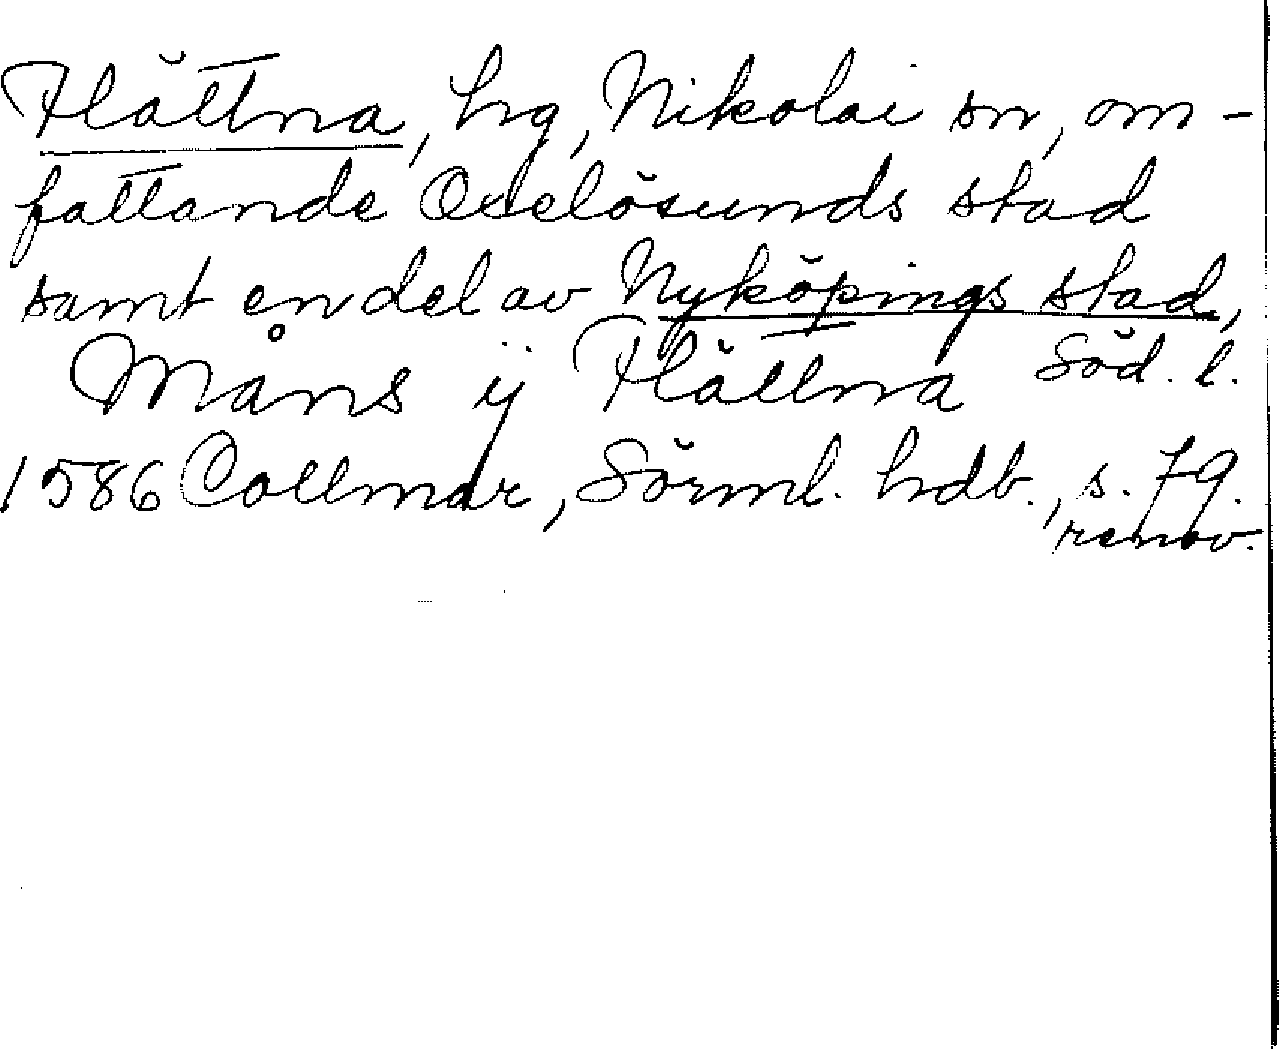 Hättna, hg, Nikolai sn, om-
fattande Oxelösunds stad
samt en del av Nyköpings stad,
Söd. l.
Måns ÿ Hättna
1586 Collmar, Sörml. hdb., s. 79.
renov.